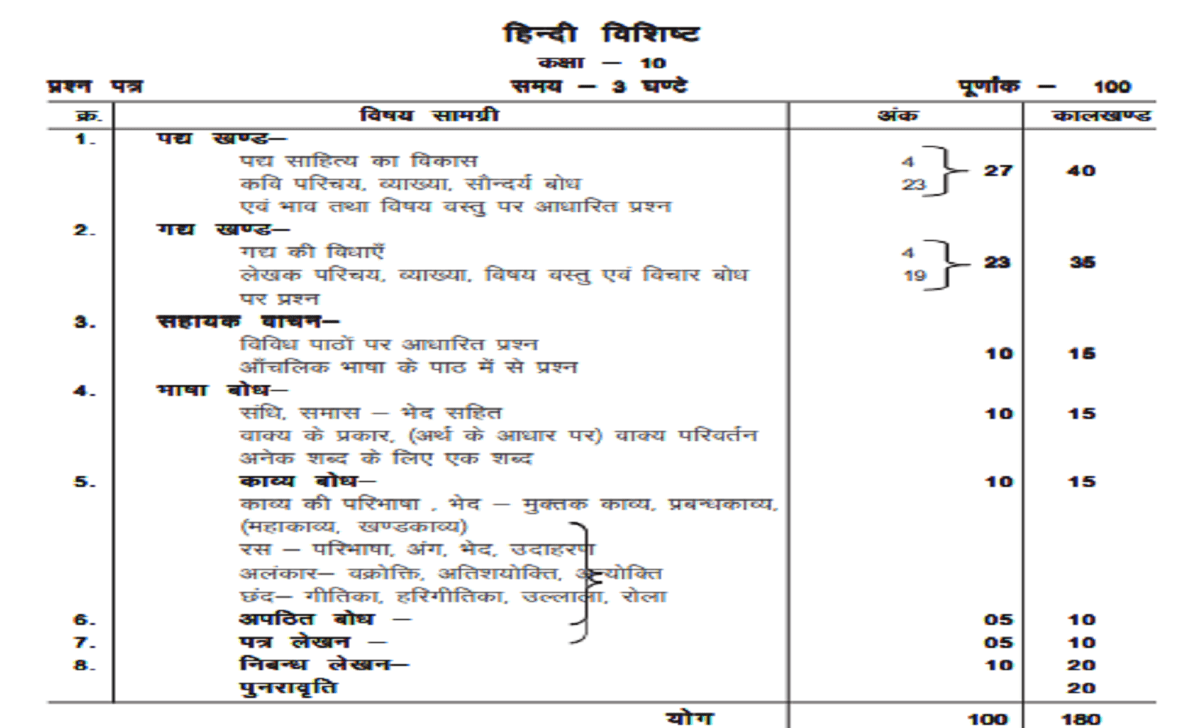 हिन्दी विशिष्ट
कक्षा – 10
प्रश्न पत्र समय – 3 घण्टे पूर्णांक – 100
क्र. विषय सामग्री अंक कालखण्ड
1. पद्य खण्ड–
पद्य साहित्य का विकास 4
27 40
कवि परिचय, व्याख्या, सौन्दर्य बोध 23
एवं भाव तथा विषय वस्तु पर आधारित प्रश्न
2. गद्य खण्ड–
गद्य की विधाएँ 4
23 35
लेखक परिचय, व्याख्या, विषय वस्तु एवं विचार बोध 19
पर प्रश्न
3. सहायक वाचन–
विविध पाठों पर आधारित प्रश्न
10 15
आँचलिक भाषा के पाठ में से प्रश्न
4. भाषा बोध–
संधि, समास – भेद सहित 10 15
वाक्य के प्रकार, (अर्थ के आधार पर) वाक्य परिवर्तन
अनेक शब्द के लिए एक शब्द
5. काव्य बोध– 10 15
काव्य की परिभाषा , भेद – मुक्तक काव्य, प्रबन्धकाव्य,
(महाकाव्य, खण्डकाव्य)
रस – परिभाषा, अंग, भेद, उदाहरण
अलंकार– वक्रोक्ति, अतिशयोक्ति, अन्योक्ति
छंद– गीतिका, हरिगीतिका, उल्लाला, रोला
6. अपठित बोध – 05 10
7. पत्र लेखन – 05 10
8. निबन्ध लेखन– 10 20
पुनरावृति 20
योग 100 180